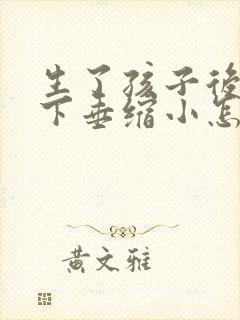 生了孩子後
下垂缩小怎
黄文雅